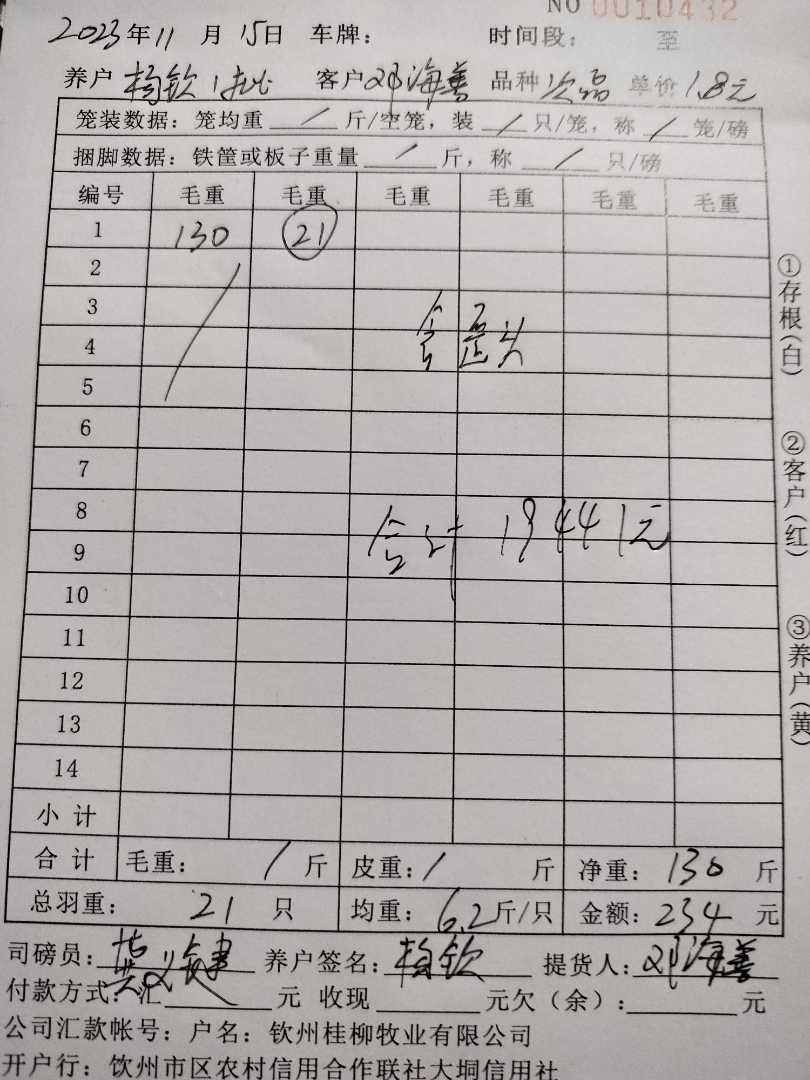 NO 0010432
2023年11月15日 车牌： 时间段： 至
养户 杨钦1批 客户 邓海善 品种 次品 单价 1.8元
笼装数据：笼均重 / 斤/空笼，装 / 只/笼，称 / 笼/磅
捆脚数据：铁筐或板子重量 / 斤，称 / 只/磅
编号 毛重 毛重 毛重 毛重 毛重 毛重
1 130 21
2
3
4
5
6
7
8
合计 19441元
9
10
11
12
13
14
小计
合计 毛重： / 斤 皮重： / 斤 净重：130 斤
总羽重： 21 只 均重：6.2斤/只 金额：234 元
司磅员： 养户签名：杨钦 提货人：邓海善
付款方式：汇 元 收现 元欠（余）： 元
公司汇款帐号：户名：钦州桂柳牧业有限公司
开户行：钦州市区农村信用合作联社大垌信用社
①存根（白）
②客户（红）
③养户（黄）